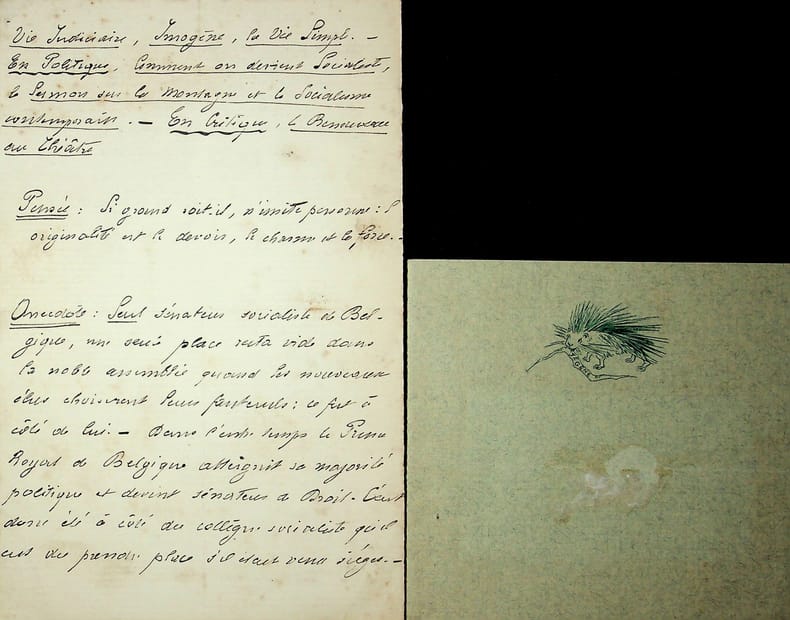 Vie Judiciaire, Imogène, la Vie Simple. —
En Politique, Comment on devient Socialiste,
le Sermon sur la Montagne et le Socialisme
contemporain. — En Critique, le Renouveau
au Théâtre
Pensée : Si grand soit-il, n'imite personne : l'
originalité est le devoir, le charme et la force. —
Anecdote : Seul sénateur socialiste de Bel-
gique, une seule place resta vide dans
la noble assemblée quand les nouveaux
élus choisirent leurs fauteuils : ce fut à
côté de lui. — Dans l'entre temps le Prince
Royal de Belgique atteignit sa majorité
politique et devint sénateur de Droit. C'eut
donc été à côté du collègue socialiste qu'il
eut du prendre place s'il était venu siéger. —